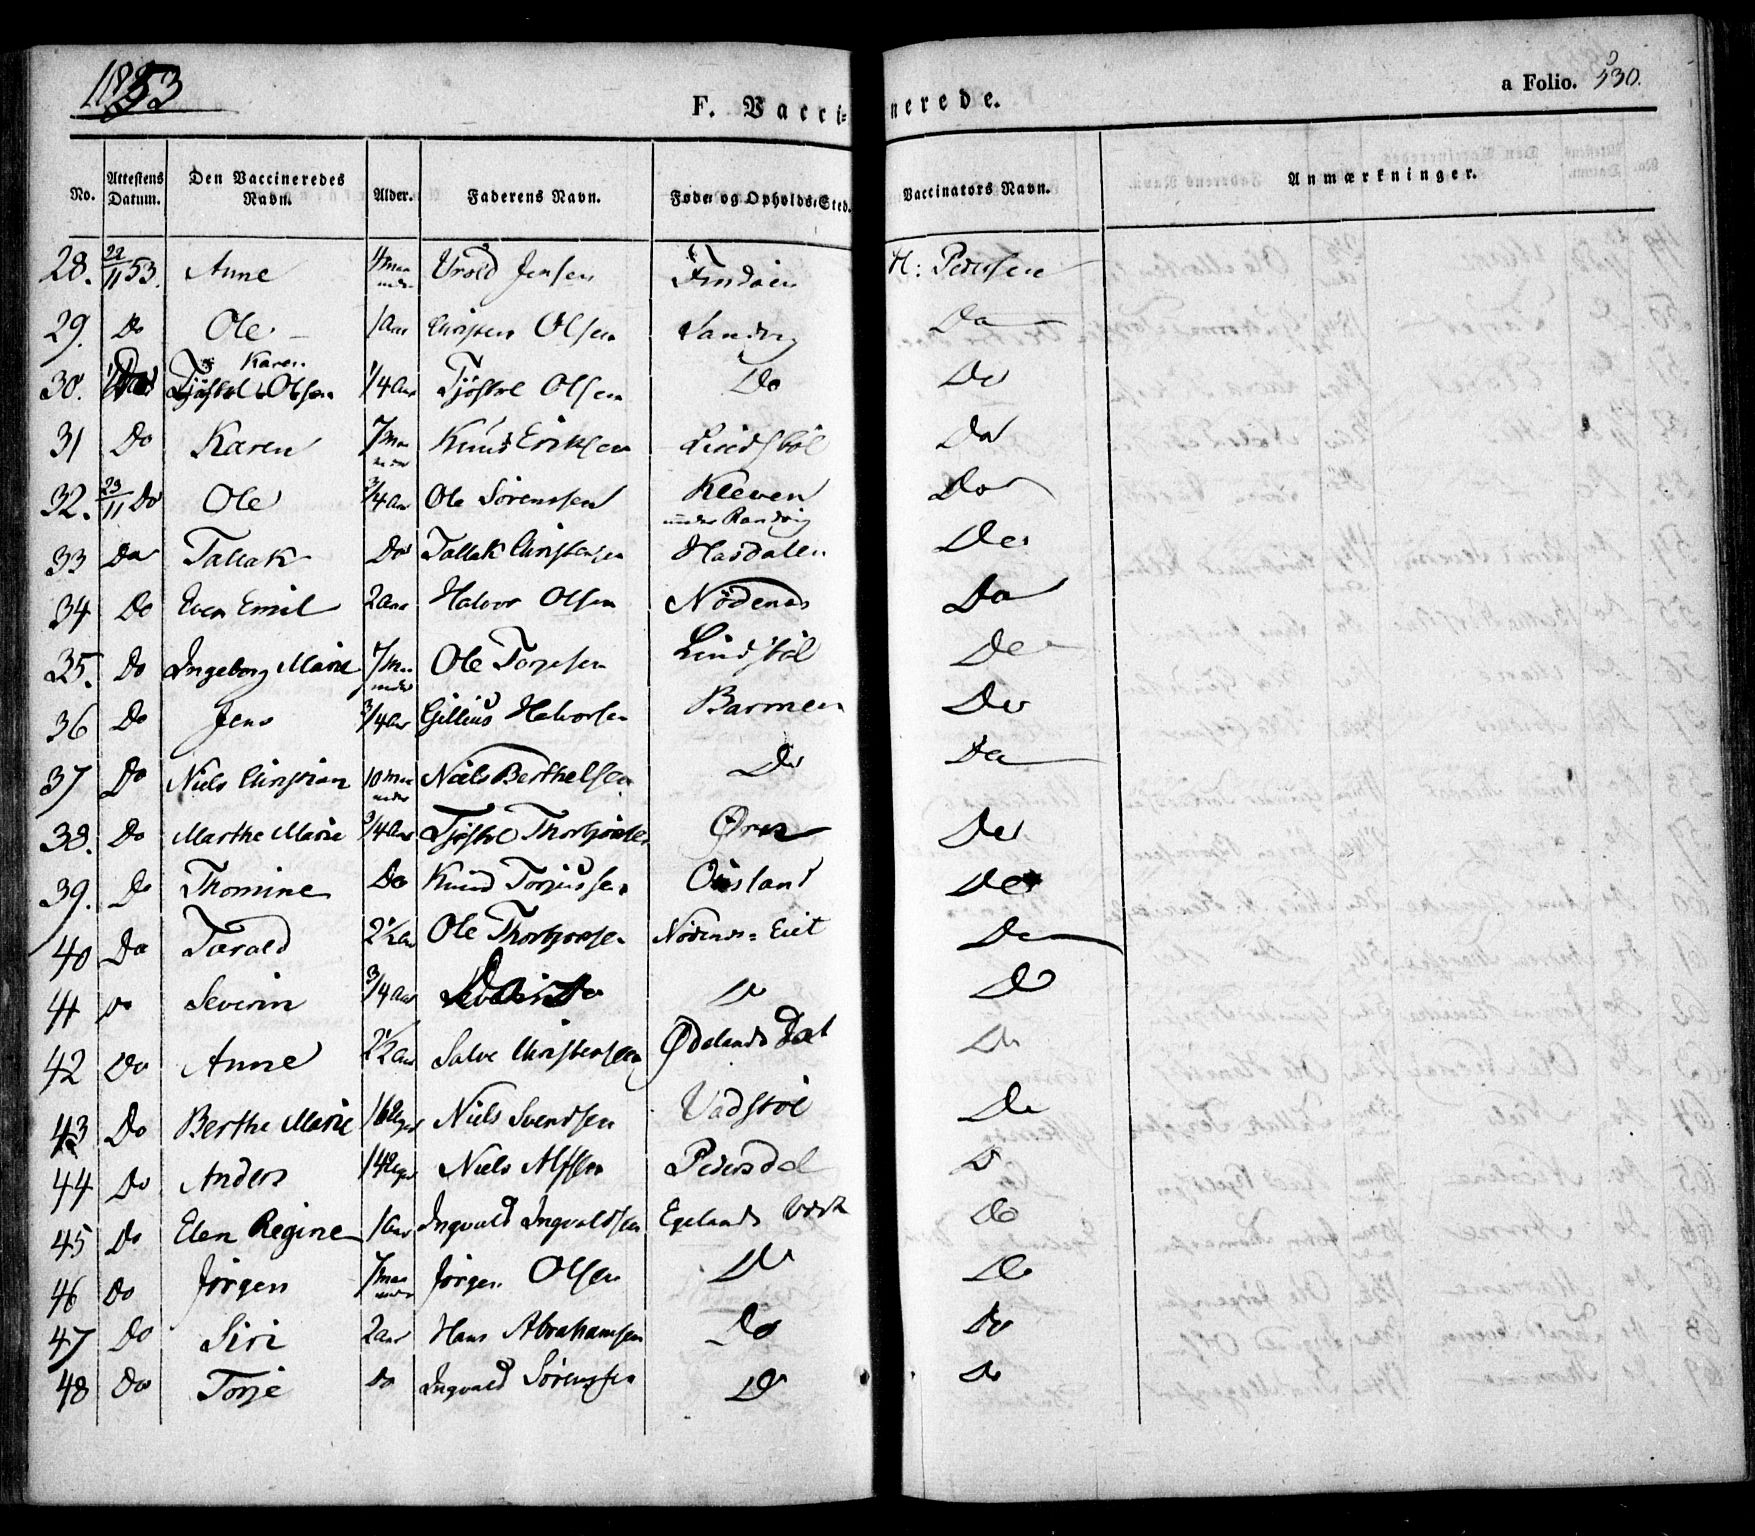 1853
F. Vaccinerede.
a Folio. 530.
No. Attestens Datum. Den Vaccineredes Navn. Alder. Faderens Navn. Føde og Opholds-Sted. Vaccinators Navn. Anmærkninger.
28. 22/11 53. Anne Jensen H: Pedersen
29. Do Ole 1 Aar Christen Olsen Sandvig Do
Karen
30. Tjöstol Olsen 1/4 Aar Tjöstol Olsen Do Do
31 Do Karen 7 Maaneder Knud Eriksen Lindstöl Do
32. 23/11 Do Ole 3/4 Aar Ole Sörensen Kleven under Randvig Do
33 Do Tallak Do Tallak Christensen Hasdalen Do
34 Do Even Emil 2 Aar Halvor Olsen Nödenæs Do
35. Do Ingeborg Marie 7 Maaneder Ole Torjesen Lindstöl Do
36 Do Jens 3/4 Aar Gillius Halvorsen Barmen Do
37 Do Niels Christian 10 Maaneder Niels Berthelsen Do Do
38. Do Marthe Marie 3/4 Aar Tjöstol Thorbjörnsen Do
39. Do Thomine Do Knud Torjussen Do
40 Do Tarald 2 1/2 Aar Ole Thorbjörnsen Nödenæs-Eiet Do
41 Do Severin 3/4 Aar Do Do Do
42 Do Anne 2 1/2 Aar Salve Christensen Ødelands Dal Do
43 Do Berthe Marie 16 Uger Niels Svendsen Vadstöl Do
44 Do Anders 14 Uger Niels Alfsen Pedersdal Do
45 Do Elen Regine 1 Aar Ingvald Ingvaldsen Egelands Værk Do
46 Do Jörgen 7 Maaneder Jörgen Olsen Do Do
47 Do Siri 2 Aar Hans Abrahamsen Do Do
48 Do Torje Do Ingvald Sörensen Do Do